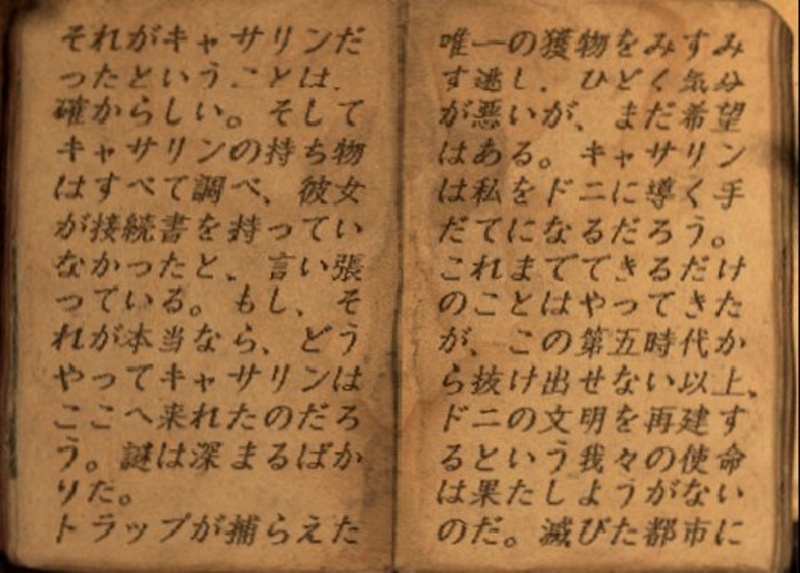 それがキャサリンだ
ったということは、
確からしい。そして
キャサリンの持ち物
はすべて調べ、彼女
が接続書を持ってい
なかったと、言い張
っている。もし、そ
れが本当なら、どう
やってキャサリンは
ここへ来れたのだろ
う。謎は深まるばか
りだ。
トラップが捕らえた
唯一の獲物をみすみ
す逃し、ひどく気分
が悪いが、まだ希望
はある。キャサリン
は私をドニに導く手
だてになるだろう。
これまでできるだけ
のことはやってきた
が、この第五時代か
ら抜け出せない以上、
ドニの文明を再建す
るという我々の使命
は果たしようがない
のだ。滅びた都市に